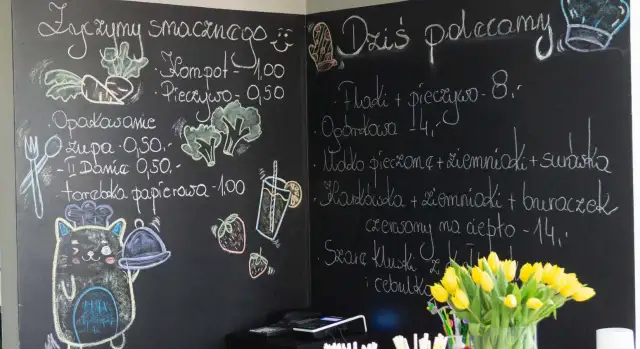 Życzymy smacznego
Kompot - 1,00
Pieczywo - 0,50
Opakowanie
zupa - 0,50,-
- II Danie 0,50,-
torebka papierowa - 1,00
Dziś polecamy
Flaki + pieczywo - 8,-
Ogórkowa - 4,-
pieczone + ziemniaki + surówka
Karkówka + ziemniaki + buraczek
czerwony na ciepło - 14,-
Szare kluski z
i cebulką